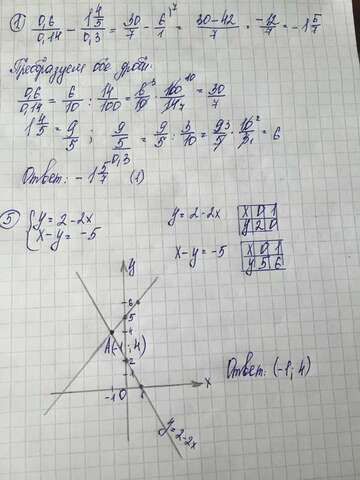 1) 0,6/0,14 - 1 4/5/0,3 = 30/7 - 6/1 = 30-42/7 = -12/7 = -1 5/7
Преобразуем обе дроби:
0,6/0,14 = 6/10 : 14/100 = 6/10 · 100/14 = 30/7
1 4/5 = 9/5 ; 9/5/0,3 = 9/5 : 3/10 = 9/5 · 10/3 = 6
Ответ: -1 5/7 (1)
5) { y = 2-2x
x-y = -5
y = 2-2x x 0 1
y 2 0
x-y = -5 x 0 1
y 5 6
y
6
5
4
A(-1; 4)
2
-1 0 1 x
y = 2-2x
Ответ: (-1; 4)